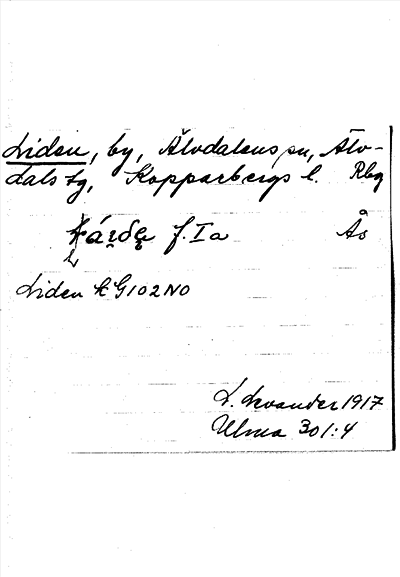 Liden, by, Älvdalens sn, Älv-
dals tg, Kopparbergs l. Rbg
f. Ia Ås
Liden k G102NO
L. Levander 1917
Ulma 301:4